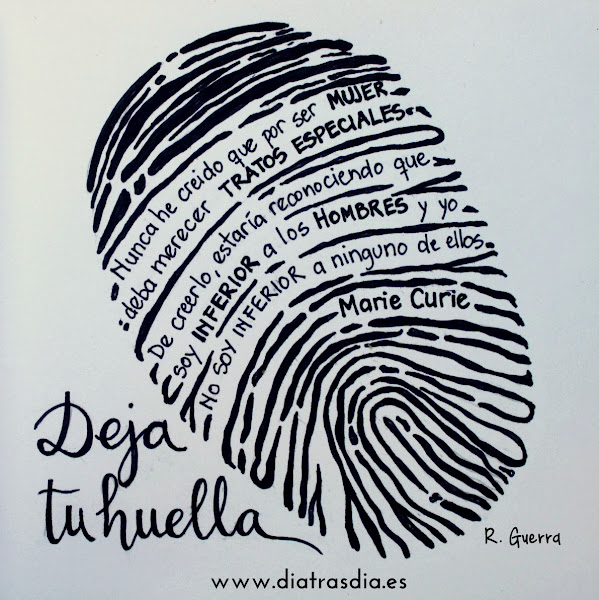 Nunca he creido que por ser MUJER
deba merecer TRATOS ESPECIALES.
De creerlo, estaría reconociendo que
soy INFERIOR a los HOMBRES y yo
No soy INFERIOR a ninguno de ellos.
Marie Curie
Deja
tu huella
R. Guerra
www.diatrasdia.es